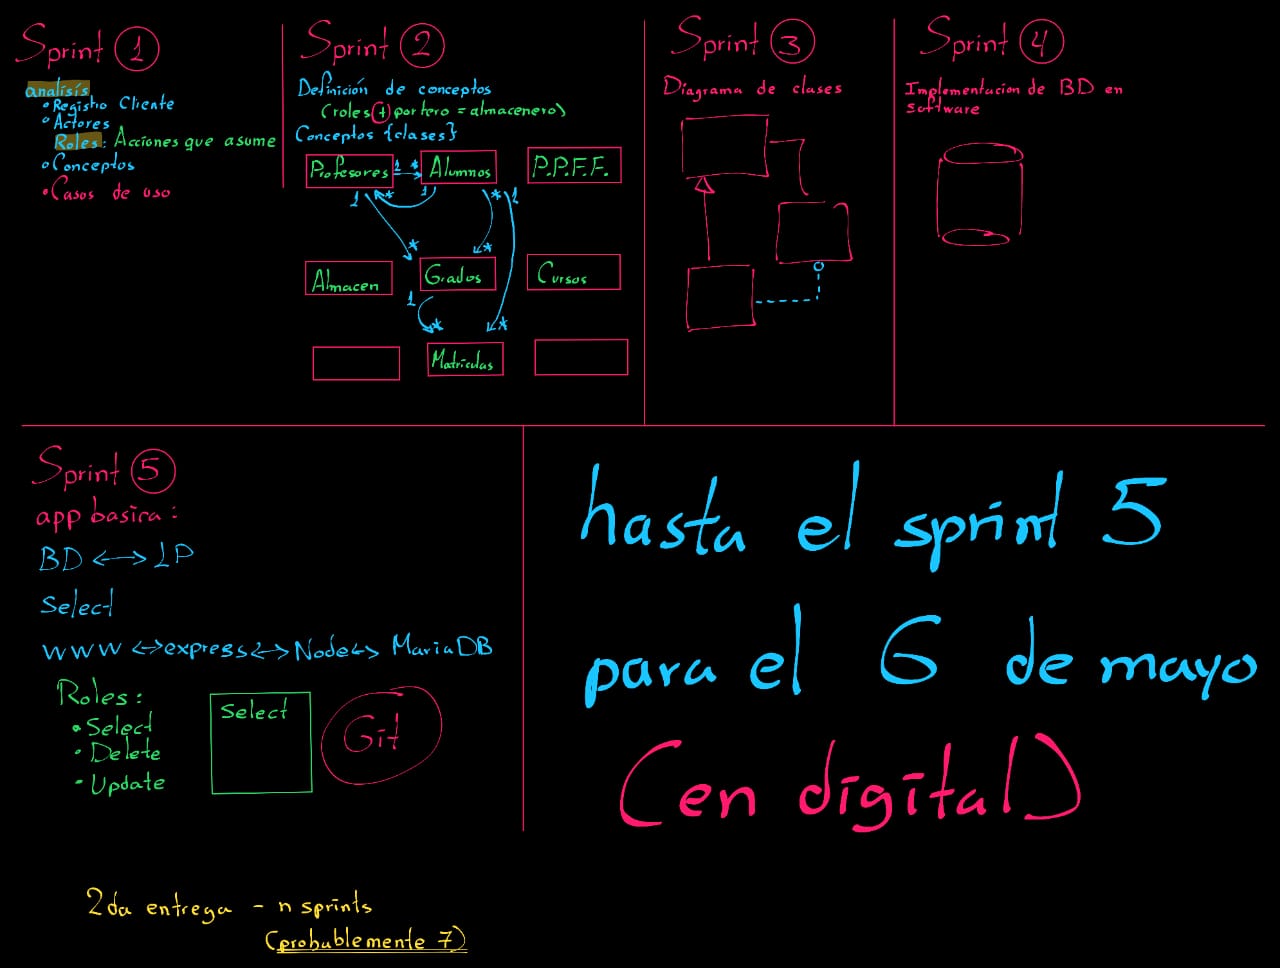 Sprint 1
analisis
• Registro Cliente
• Actores
Roles: Acciones que asume
• Conceptos
• Casos de uso
Sprint 2
Definición de conceptos
(roles + portero = almacenero)
Conceptos {clases}
Profesores
1
*
Alumnos
P.P.F.F.
1
*
1
*
1
*
*
Almacen
Grados
Cursos
1
*
*
Matriculas
Sprint 3
Diagrama de clases
Sprint 4
Implementacion de BD en
software
Sprint 5
app basica:
BD <--> LP
Select
www <-> express <-> Node <-> MariaDB
Roles:
• Select
• Delete
• Update
Select
Git
hasta el sprint 5
para el 6 de mayo
(en digital)
2da entrega - n sprints
(probablemente 7)